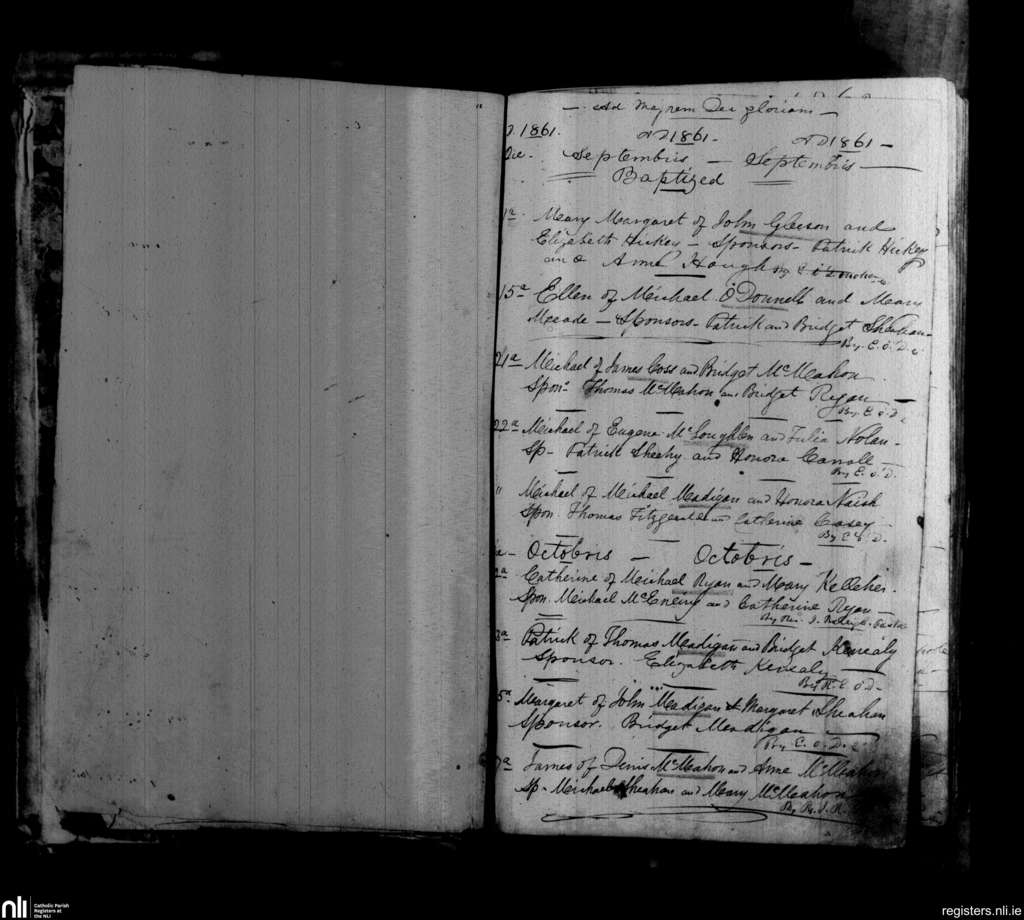 — Ad Majorem Dei gloriam —
1861. AD 1861. AD 1861 —
Die. Septembris — Septembris —
Baptized
1a Meary Margaret of John Gleeson and
Elizabeth Hickey — Sponsors — Patrick Hickey
and Anne Hough By E.
15a Ellen of Meichael O'Donnell and Meary
Meade — Sponsors — Patrick and Bridget Sheahan —
By E. O'D.
21a Meichael of James Coss and Bridget McMeahon
Spons Thomas McMeahon and Bridget Ryan —
By E. O'D.
22a Meichael of Eugene McLoughlen and Julia Nolan —
Sp — Patrick Sheehy and Honora Carroll —
By E. O'D.
" Meichael of Meichael Meadigan and Honora Naish
Spon. Thomas Fitzgerald and Catherine Casey —
By E. O'D.
Octobris — Octobris —
2a Catherine of Meichael Ryan and Meary Kelleher.
Spon. Meichael McEneiry and Catherine Ryan —
By Rev. J.
3a Patrick of Thomas Meadigan and Bridget Kenealy
Sponsor. Elizabeth Kenealy
By R. E. O'D —
5a Margaret of John Meadigan & Margaret Sheahan
Sponsor. Bridget Meadigan
By E. O'D.
7a James of Denis McMeahon and Anne McMeahon
Sp — Meichael Sheahan and Meary McMeahon
By Rv. J. R.
nli Catholic Parish
Registers at
the NLI
registers.nli.ie